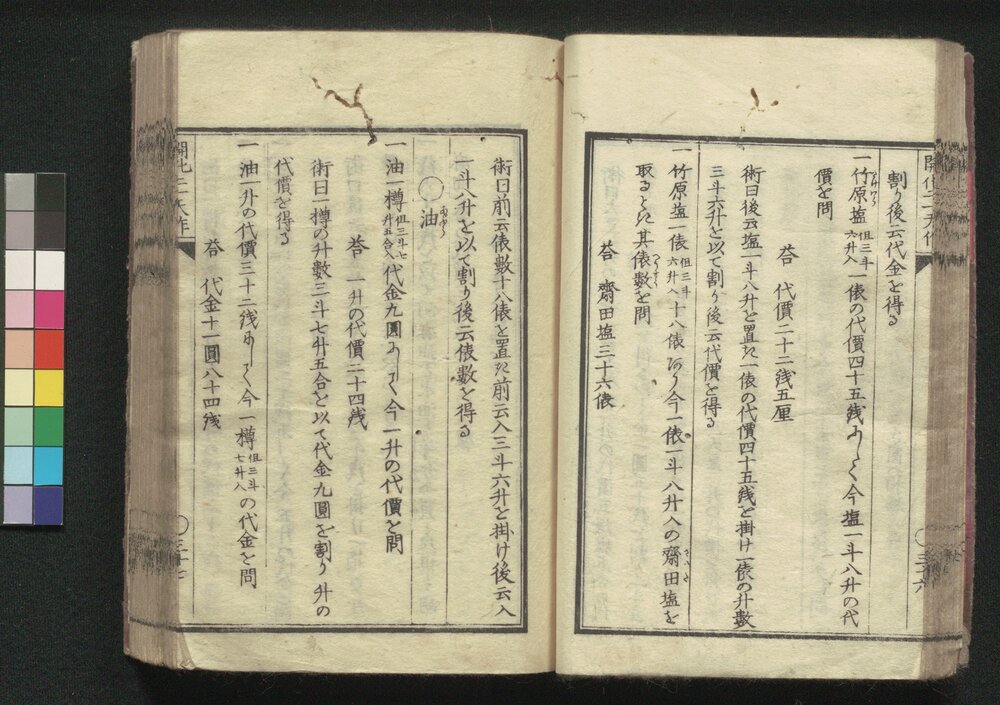 割り後云代金を得る
一竹原塩但三斗六升入一俵の代價四十五銭ゟして今塩一斗八升の代
價を問
答 代價二十二銭五厘
術曰後云塩一斗八升を置き一俵の代價四十五銭を掛け一俵の升數
三斗六升を以て割り後云代價を得る
一竹原塩一俵但三斗六升入十八俵あり今一俵一斗八升入の齋田塩を
取るときは其俵數を問
答 齋田塩三十六俵
三十六
術曰前云俵數十八俵を置き前云入三斗六升を掛け後云入
一斗八升を以て割り後云俵數を得る
〇油
一油一樽但三斗七升五合入代金九圓にして今一升の代價を問
答 一升の代價二十四銭
術曰一樽の升數三斗七升五合を以て代金九圓を割り一升の
代價を得る
一油一升の代價三十二銭にして今一樽但三斗七升入の代金を問
答 代金十一圓八十四銭
三十七